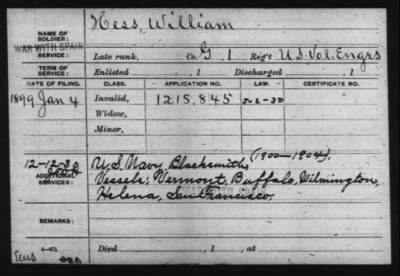 NAME OF SOLDIER: Hess, William
WAR WITH SPAIN
SERVICE: Late rank, Co. G, 1 Reg't U.S. Vol. Engrs
TERM OF SERVICE: Enlisted , 1 Discharged , 1
DATE OF FILING. CLASS. APPLICATION NO. LAW. CERTIFICATE NO.
1899 Jan 4 Invalid, 1215.845
Widow,
Minor,
12-12-30 U.S. Navy, Blacksmith, (1900-1904).
ADDITIONAL SERVICES: Vessels; Vermont, Buffalo, Wilmington,
Helena, San Francisco.
REMARKS:
Died , 1 , at